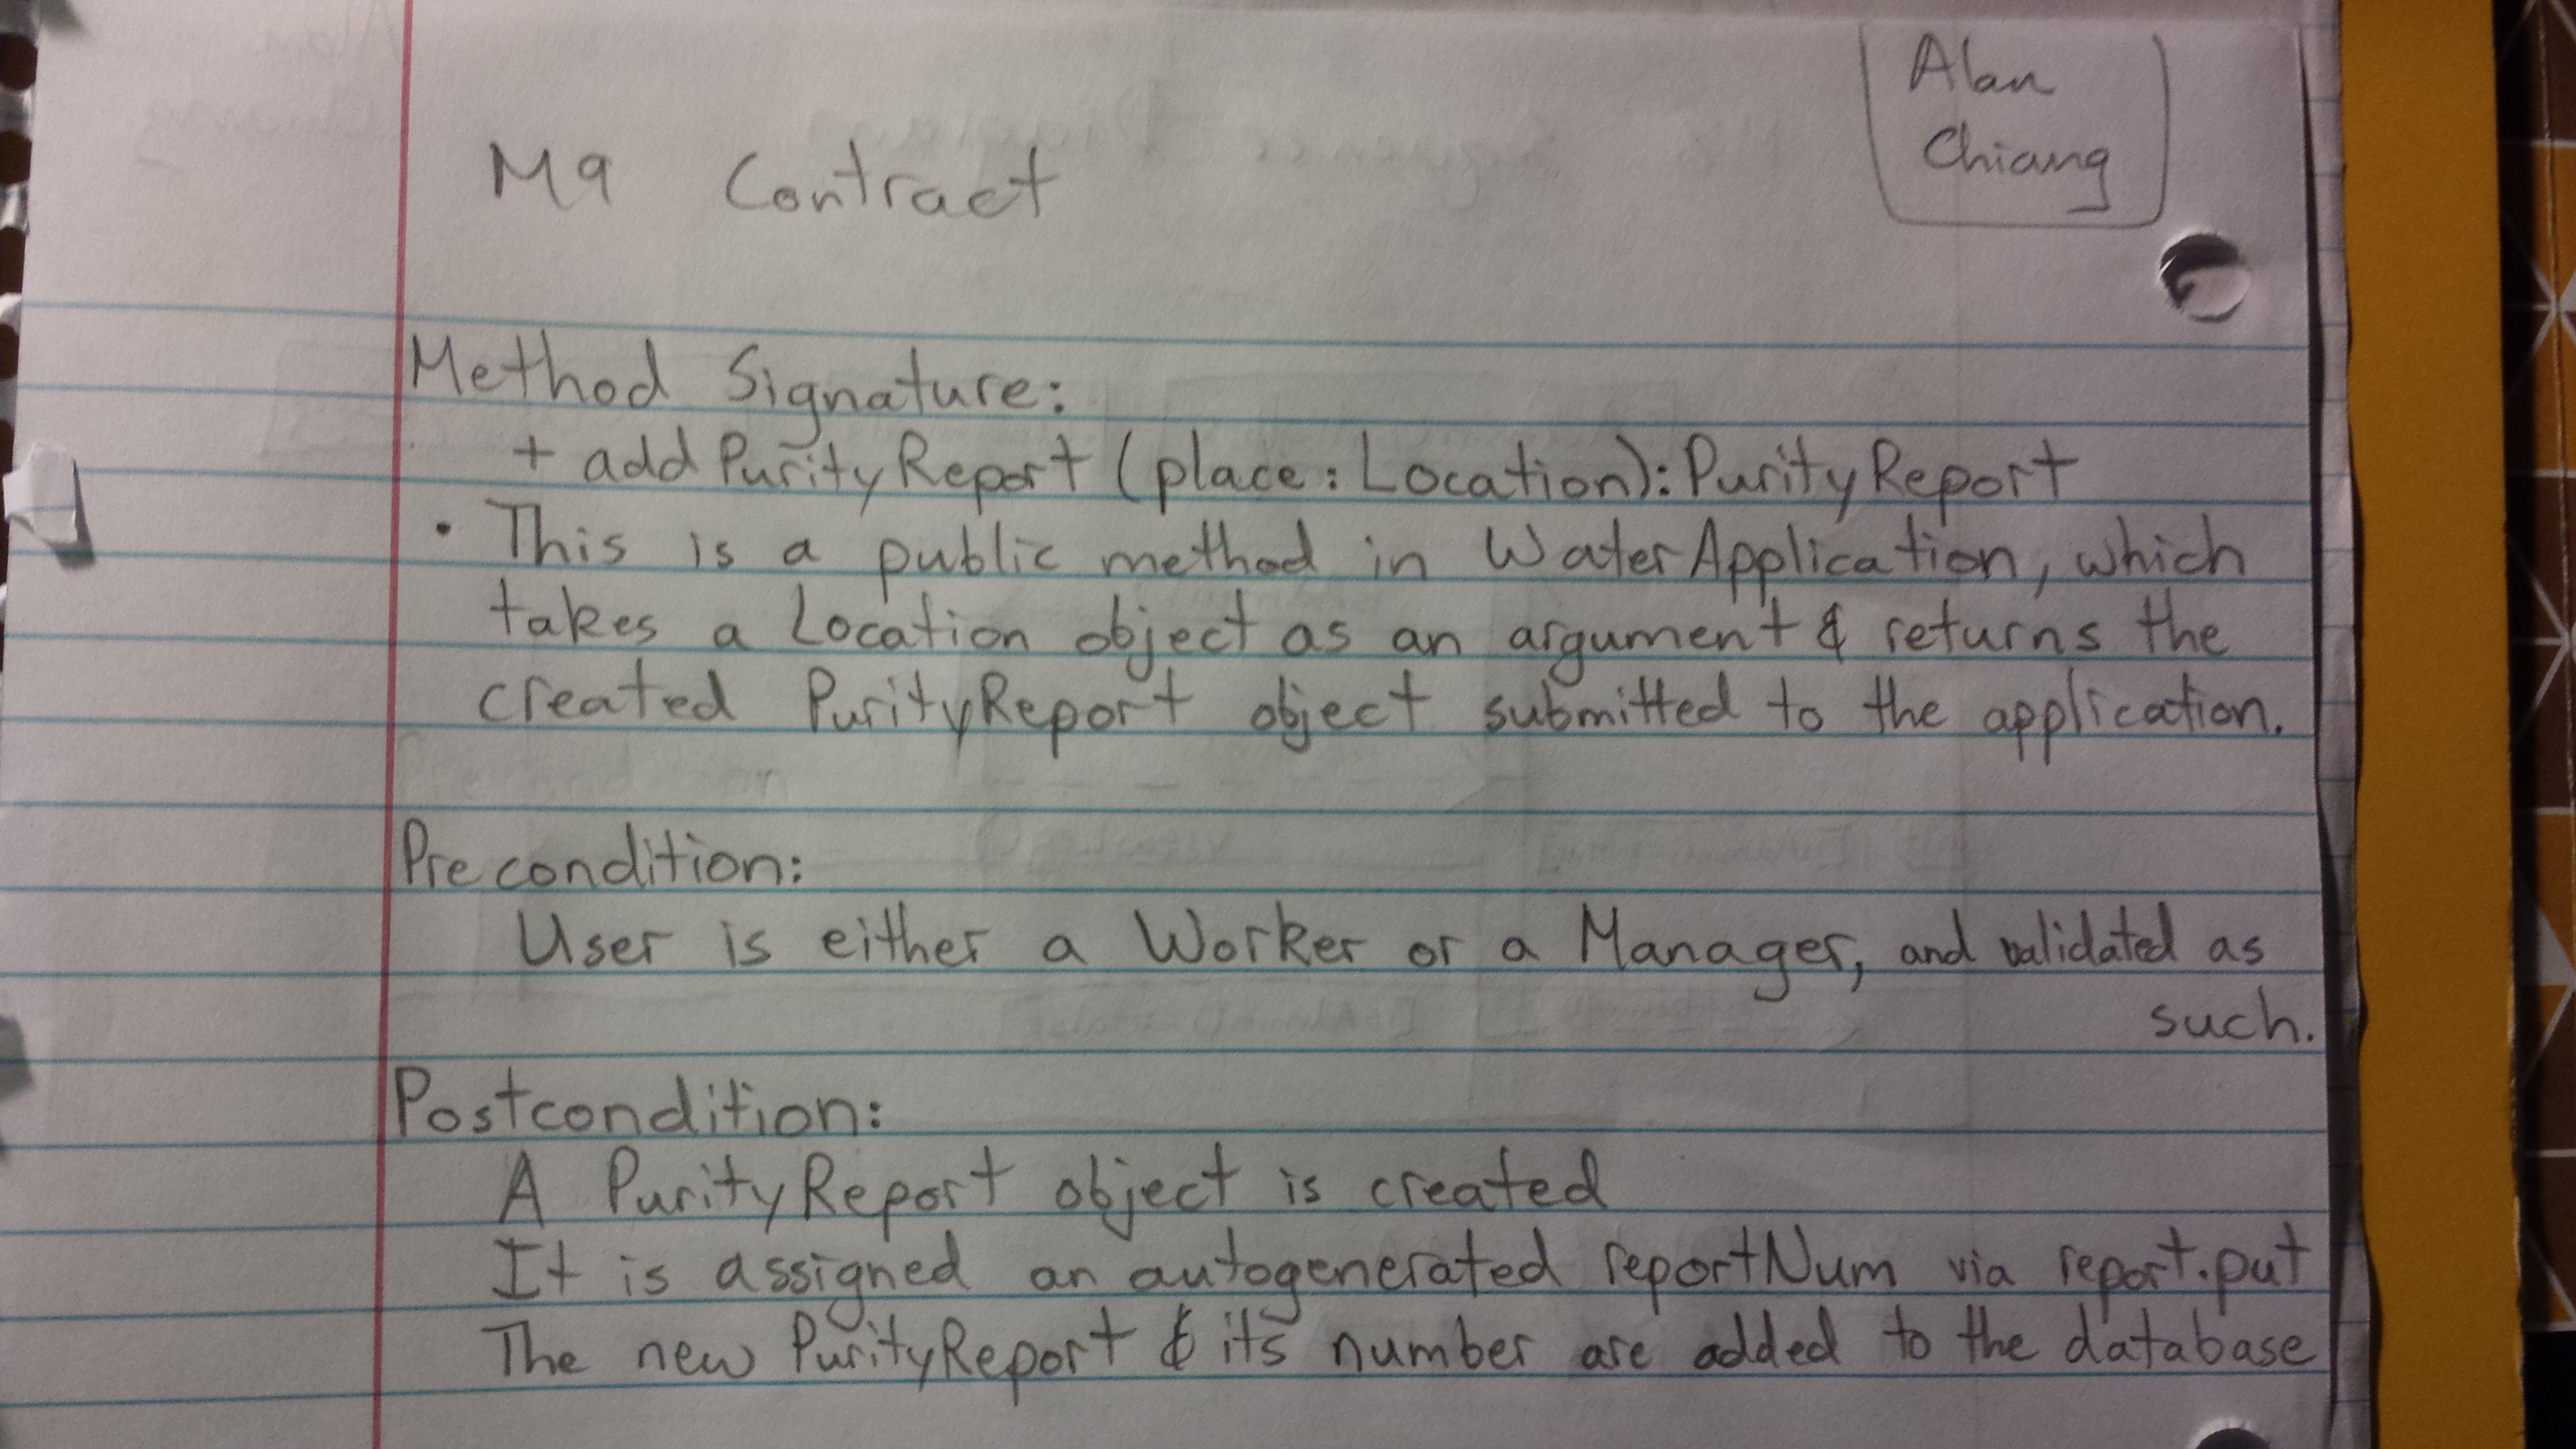 Alan
Chiang
M9 Contract
Method Signature:
+ addPurityReport (place: Location): PurityReport
• This is a public method in WaterApplication, which
takes a Location object as an argument & returns the
created PurityReport object submitted to the application.
Precondition:
User is either a Worker or a Manager, and validated as
such.
Postcondition:
A PurityReport object is created
It is assigned an autogenerated reportNum via report.put
The new PurityReport & its number are added to the database